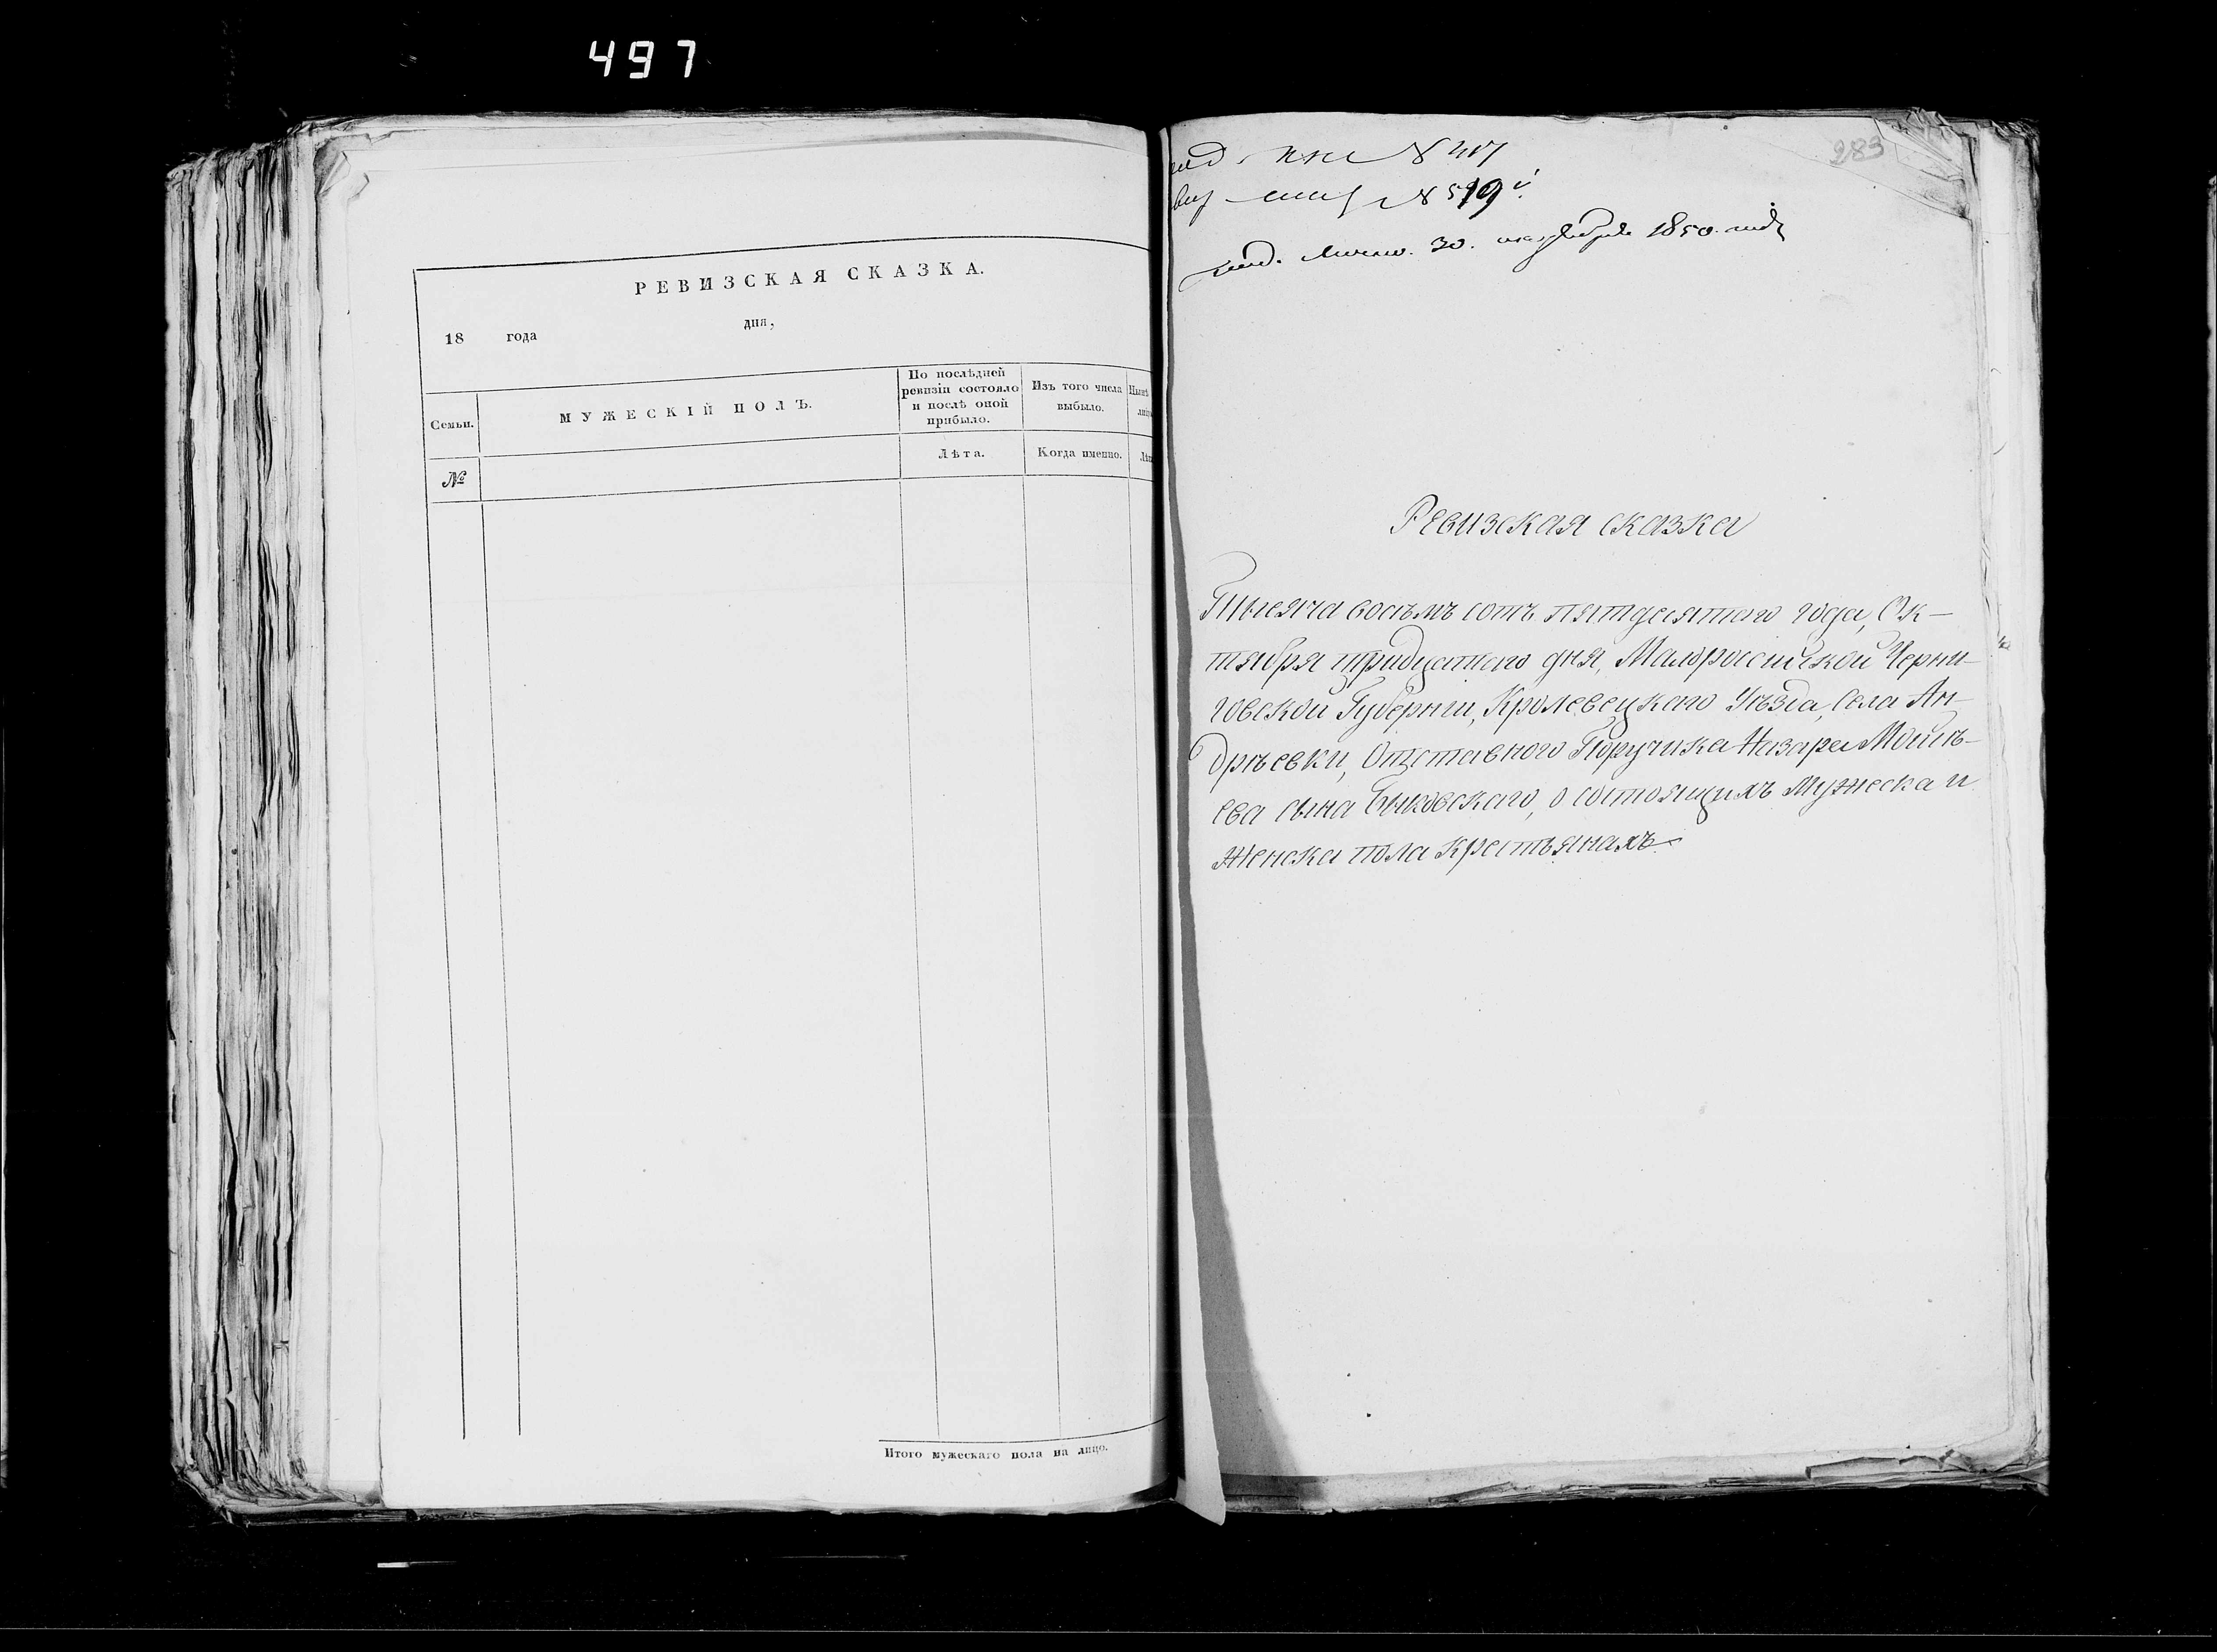 497
РЕВИЗСКАЯ СКАЗКА.
18 года дня,
Семьи.
МУЖЕСКІЙ ПОЛЪ.
По послѣдней
ревизіи состояло
и послѣ оной
прибыло.
Изъ того числа
выбыло.
№
Лѣта.
Когда именно.
Итого мужескаго пола на лицо.
283
№ 417
№ 519
30. октября 1850. года
Ревизская сказка
Тысяча восемь сотъ пятдесятого года, Ок-
тября тридцатого дня, Малороссійской Черни-
говской Губерніи, Кролевецкаго Уѣзда, села Ан-
дрѣевки, Отставного Поручика Назара Моисѣ-
ева сына Быковскаго, о состоящихъ Мужеска и
Женска пола крестьянахъ